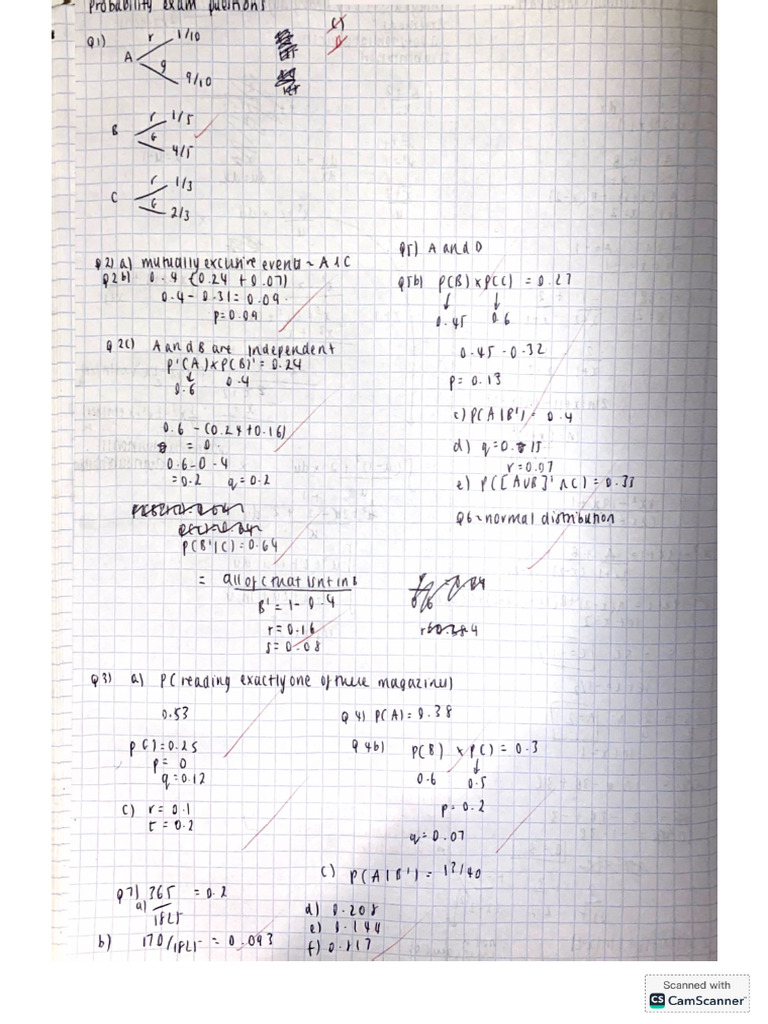 Probability exam questions
Q1)
A
r 1/10
g 9/10
B
r 1/5
G 4/5
C
r 1/3
G 2/3
Q2) a) mutually exclusive events = A & C
Q2b) 0.4 - (0.24 + 0.07)
0.4 - 0.31 = 0.09
p = 0.09
Q2c) A and B are independent
P'(A) x P(B)' = 0.24
0.6 0.4
0.6 - (0.24 + 0.16)
= 0.
0.6 - 0.4
= 0.2 q = 0.2
P(B'|C) = 0.64
= all of C that isnt in B
B' = 1 - 0.4
r = 0.16
s = 0.08
Q5) A and D
Q5b) P(B) x P(C) = 0.27
0.45 0.6
0.45 - 0.32
p = 0.13
c) P(A|B') = 0.4
d) q = 0.15
r = 0.07
e) P([AUB]' ∩ C) = 0.33
Q6 = normal distribution
Q3) a) P(reading exactly one of these magazines)
0.53
p(s) = 0.25
p = 0
q = 0.12
c) r = 0.1
t = 0.2
Q4) P(A) = 0.38
Q4b) P(B) x P(C) = 0.3
0.6 0.5
p = 0.2
q = 0.07
c) P(A|B') = 12/40
Q7) 365 = 0.2
a) 1825
b) 170/1825 = 0.093
d) 0.208
e) 0.144
f) 0.117
Scanned with
CS CamScanner